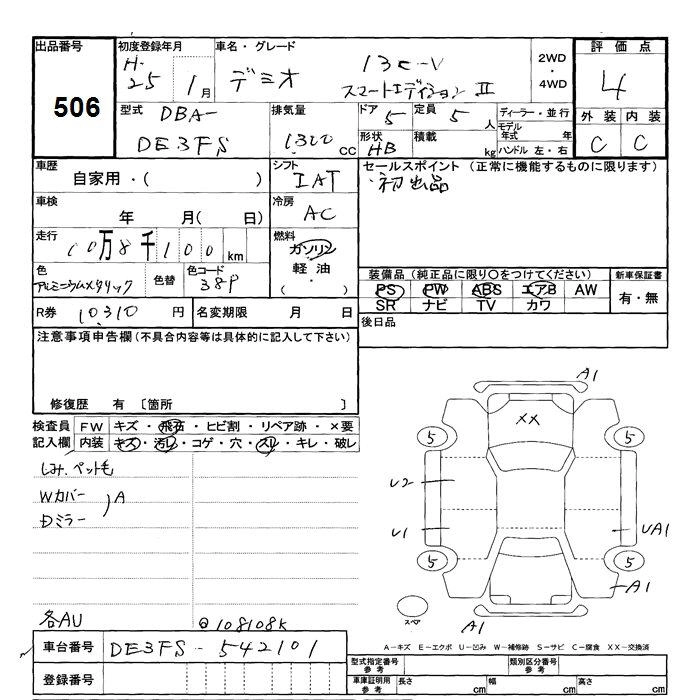 出品番号 初度登録年月 車名・グレード 13C-V 2WD・4WD 評価点
506 H-25 1月 デミオ スマートエディションⅡ 4
型式 DBA-DE3FS 排気量 1300 CC ドア 5 定員 5 人 ディーラー・並行 外装 内装
形状 HB 積載 kg モデル年式 年 ハンドル 左・右 C C
車歴 自家用・( ) シフト IAT セールスポイント (正常に機能するものに限ります)
初出品
車検 年 月( 日) 冷房 AC
走行 10万8千100km 燃料 ガソリン 軽油 ( ・ )
色 アルミニウムメタリック 色替 色コード 38P 装備品(純正品に限り○をつけてください) 新車保証書
PS PW ABS エアB AW 有・無
SR ナビ TV カワ
R券 10310 円 名変期限 月 日 後日品
注意事項申告欄(不具合内容等は具体的に記入して下さい)
修復歴 有 〔箇所 〕
検査員 FW キズ・飛石・ヒビ割・リペア跡・×要
記入欄 内装 キズ・汚レ・コゲ・穴・スレ・キレ・破レ
しみ、ペット毛
Wカバー
Dミラー
A
各AU @108108K
A1
XX
5 5
U2
U1 UA1
5 5
A1
スペア A1
A-キズ E-エクボ U-凹み W-補修跡 S-サビ C-腐食 XX-交換済
車台番号 DE3FS-542101
登録番号
型式指定番号 参考 類別区分番号 参考
車庫証明用 参考 長さ cm 幅 cm 高さ cm